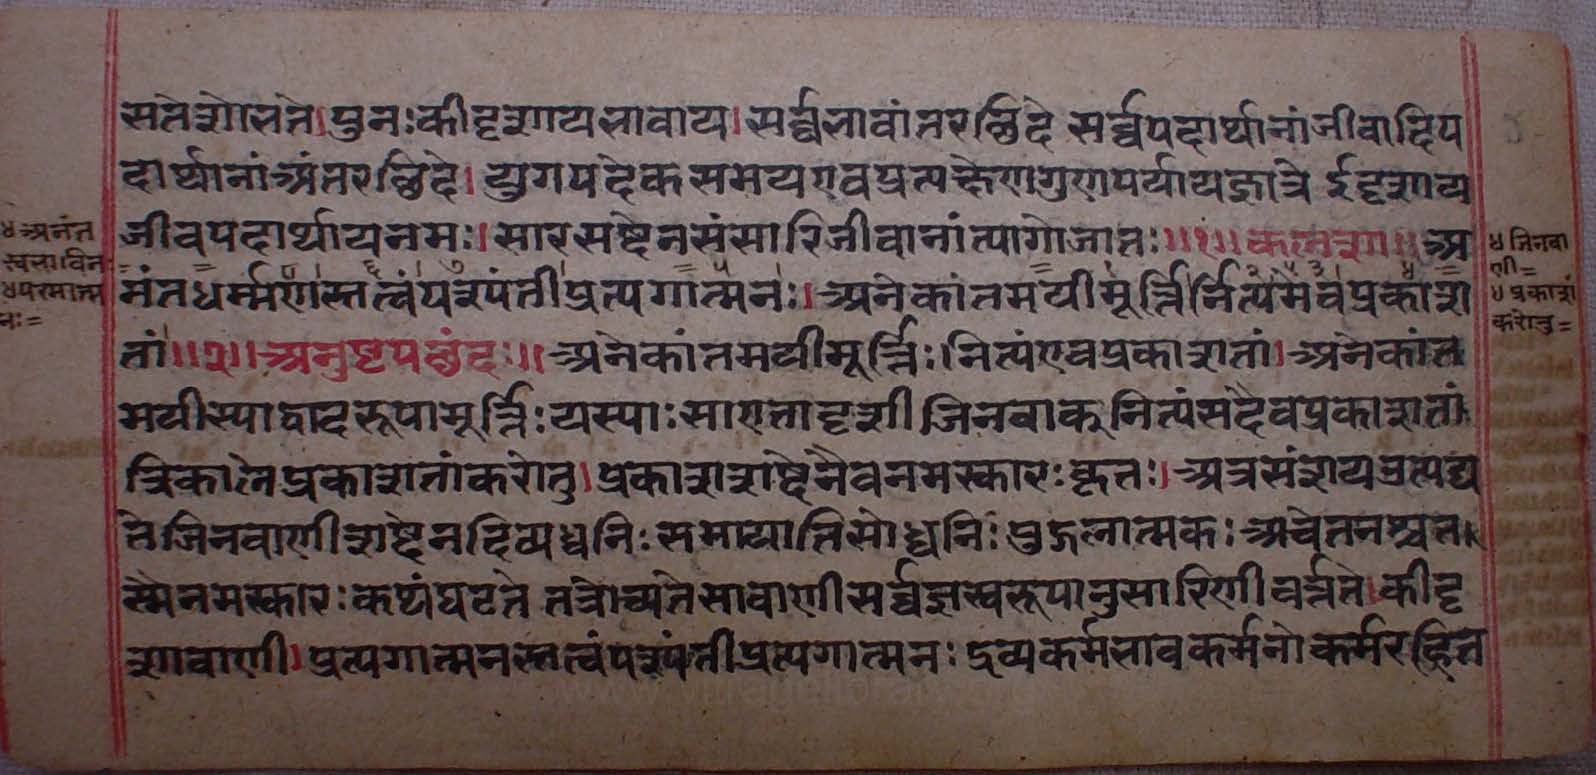 सते शोभते। पुनः कीदृशाय भावाय। सर्व्वभावांतरछिदे सर्व्वपदार्थानां जीवादिप
दार्थानां अंतरछिदे। युगपदेकसमय एव प्रत्यक्षेण गुणपर्यायज्ञात्रे ईदृशाय
जीवपदार्थाय नमः। सारसब्देन संसारिजीवानां त्यागो जातः॥१॥ कलश॥ अ
नंतधर्म्मणस्तत्वं पश्यंती प्रत्यगात्मनः। अनेकांतमयी मूर्त्तिर्नित्यमेव प्रकाश
तां॥२॥ अनुष्टपछंदः॥ अनेकांतमयी मूर्त्तिः नित्यं एव प्रकाशतां। अनेकांत
मयी स्याद्वादरूपा मूर्त्तिः यस्याः सा एतादृशी जिनवाक् नित्यं सदैव प्रकाशतां
त्रिकाले प्रकाशतां करोतु। प्रकाशशब्देनैव नमस्कारः कृतः। अत्र संशयप्रत्यद्य
ते जिनवाणीशब्देन दिव्यध्वनिः समायाति सो ध्वनिः पुद्गलात्मकः अचेतनश्च त
स्मै नमस्कारः कथं घटते तत्रोच्यते सा वाणी सर्व्वज्ञस्वरूपानुसारिणी वर्त्तते। कीदृ
शा वाणी। प्रत्यगात्मनस्तत्वं पश्यंती प्रत्यगात्मनः द्रव्यकर्मभावकर्मनोकर्मरहित
अनंत
स्वभाविनः=
परमात्म
नः=
जिनवा
णी=
प्रकाशं
करोतु=